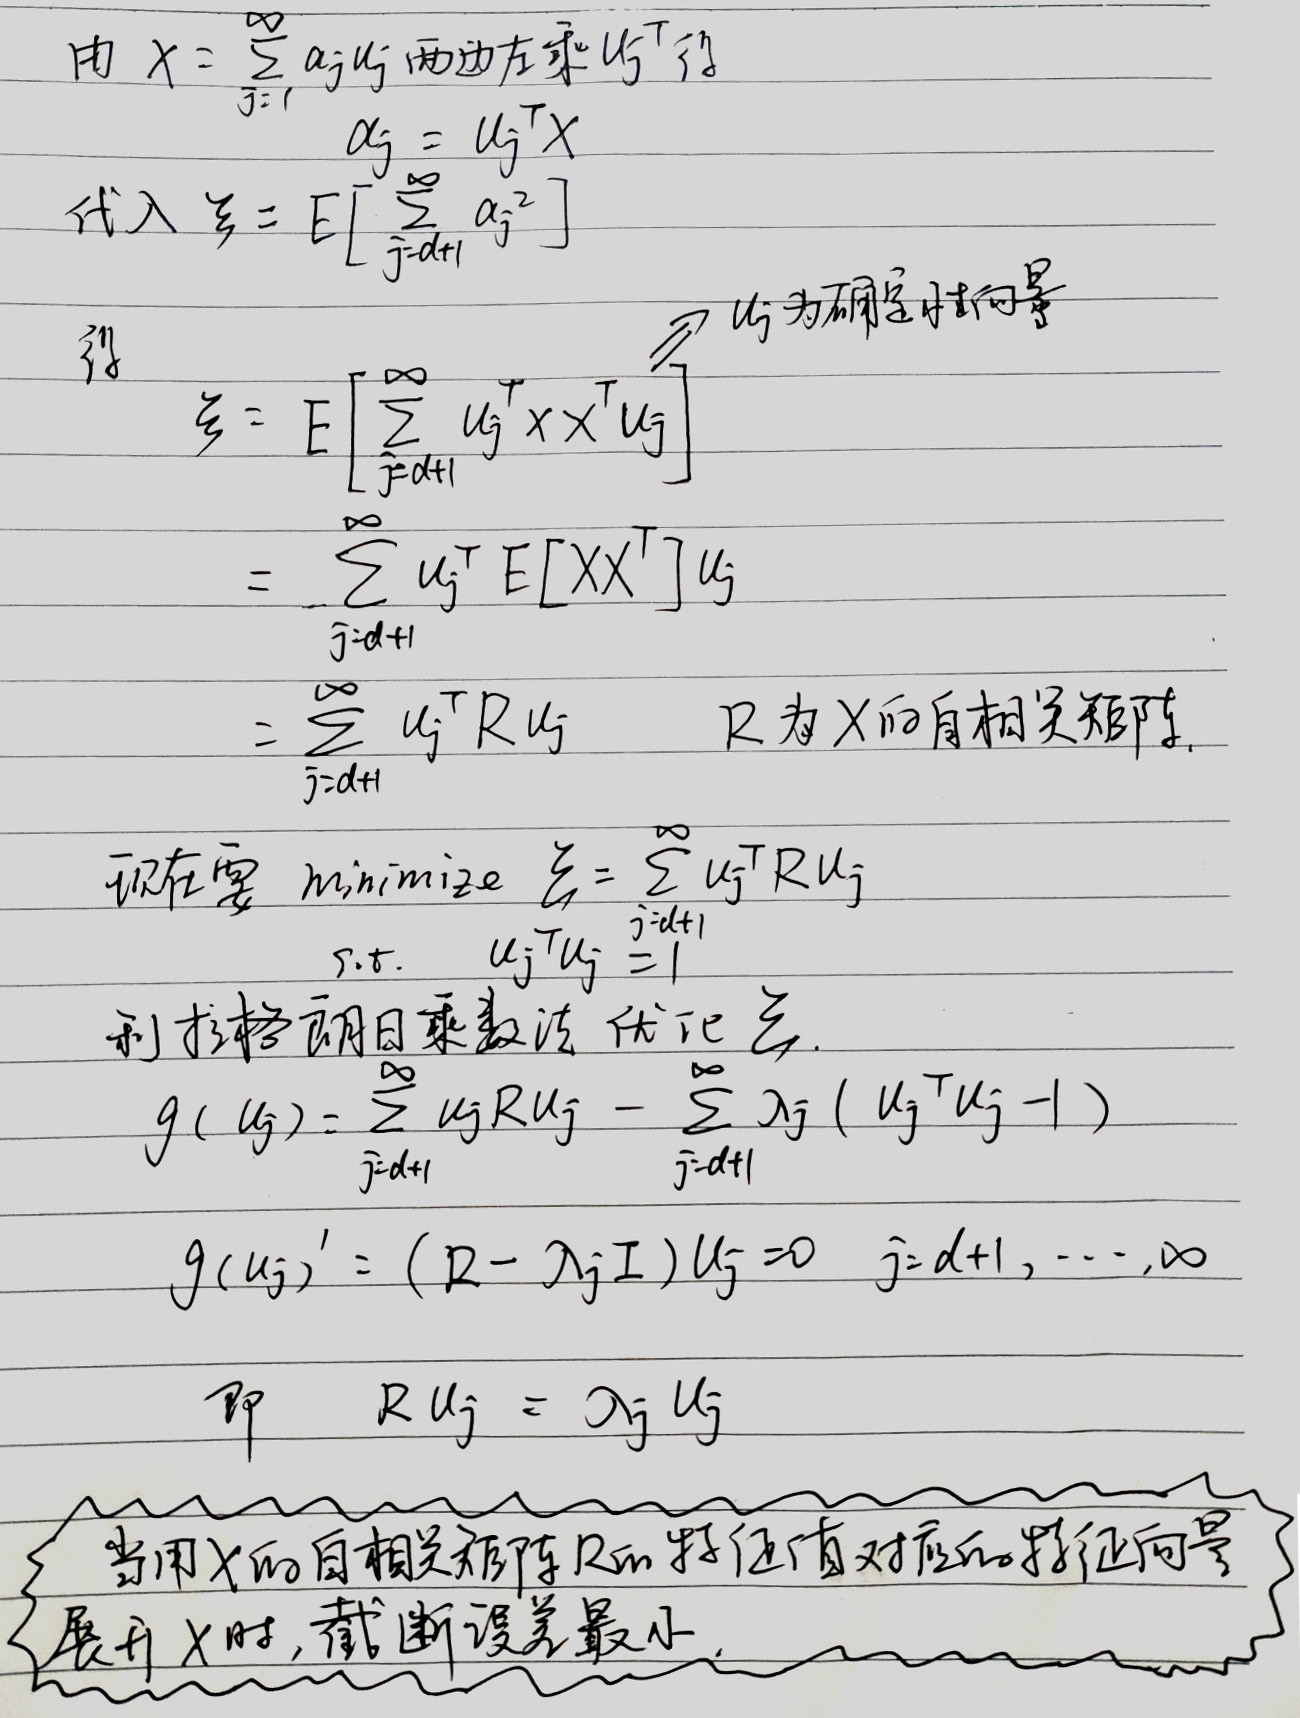 由 X = ∑_{j=1}^{∞} a_j u_j 两边左乘 u_j^T 得
α_j = u_j^T X
代入 ξ = E[ ∑_{j=d+1}^{∞} a_j^2 ]
⇗ u_j 为确定性向量
得
ξ = E[ ∑_{j=d+1}^{∞} u_j^T x x^T u_j ]
= ∑_{j=d+1}^{∞} u_j^T E[XX^T] u_j
= ∑_{j=d+1}^{∞} u_j^T R u_j R 为 X 的自相关矩阵.
现在要 minimize ξ = ∑_{j=d+1}^{∞} u_j^T R u_j
s.t. u_j^T u_j = 1
利拉格朗日乘数法 优化 ξ.
g(u_j) = ∑_{j=d+1}^{∞} u_j R u_j − ∑_{j=d+1}^{∞} λ_j ( u_j^T u_j − 1 )
g(u_j)' = (R − λ_j I) u_j = 0 j = d+1, ····, ∞
即 R u_j = λ_j u_j
当用 X 的自相关矩阵 R 的特征值对应的特征向量
展开 X 时, 截断误差最小.